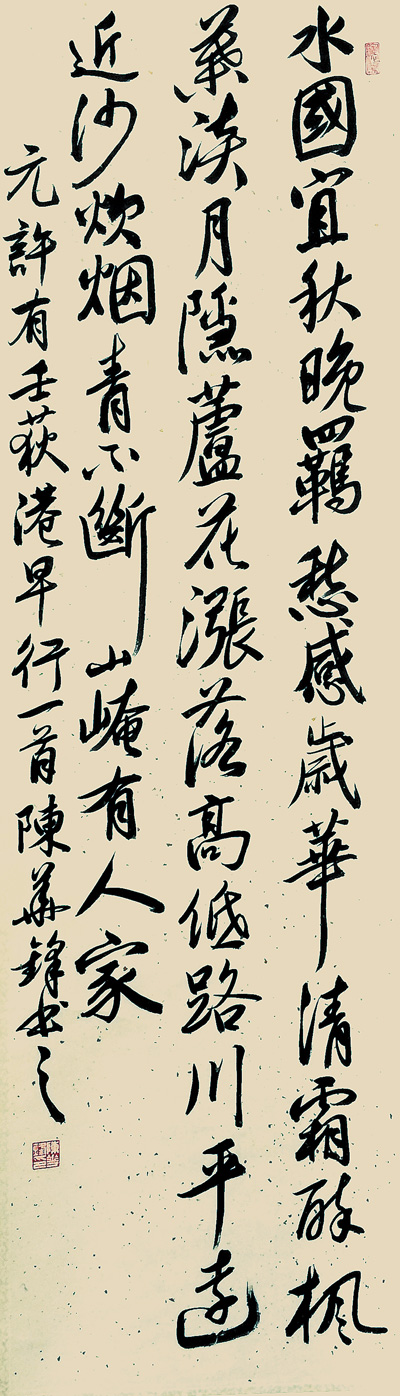 水國宜秋晚羈愁感歲華清霜醉楓
葉淡月隱蘆花漲落高低路川平遠
近沙炊烟青不斷山崦有人家
元許有壬荻港早行一首陳華鋒書之